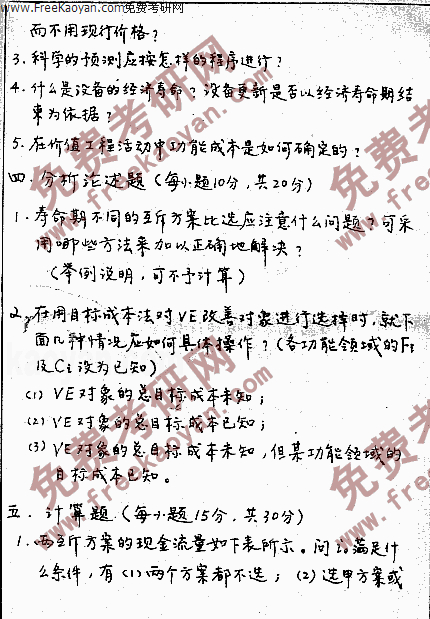 www.FreeKaoyan.com免费考研网
而不用现行价格？
3. 科学的预测应按怎样的程序进行？
4. 什么是设备的经济寿命？设备更新是否以经济寿命期结
束为依据？
5. 在价值工程活动中功能成本是如何确定的？
四. 分析论述题（每小题10分，共20分）
1. 寿命期不同的互斥方案比选应注意什么问题？可采
用哪些方法来加以正确地解决？
（举例说明，可不予计算）
2. 在用目标成本法对VE改善对象进行选择时，就下
面几种情况应如何具体操作？（各功能领域的Fi
及Ci设为已知）
(1) VE对象的总目标成本未知；
(2) VE对象的总目标成本已知；
(3) VE对象的总目标成本未知，但某功能领域的
目标成本已知。
五. 计算题（每小题15分，共30分）
1. 两互斥方案的现金流量如下表所示。问i0满足什
么条件，有(1)两个方案都不选；(2)选甲方案或
免费考研网
www.freekaoyan.com
免费考研网
www.freekaoyan.com
免费考研网
www.freekaoyan.com
免费考研网
www.freekaoyan.com